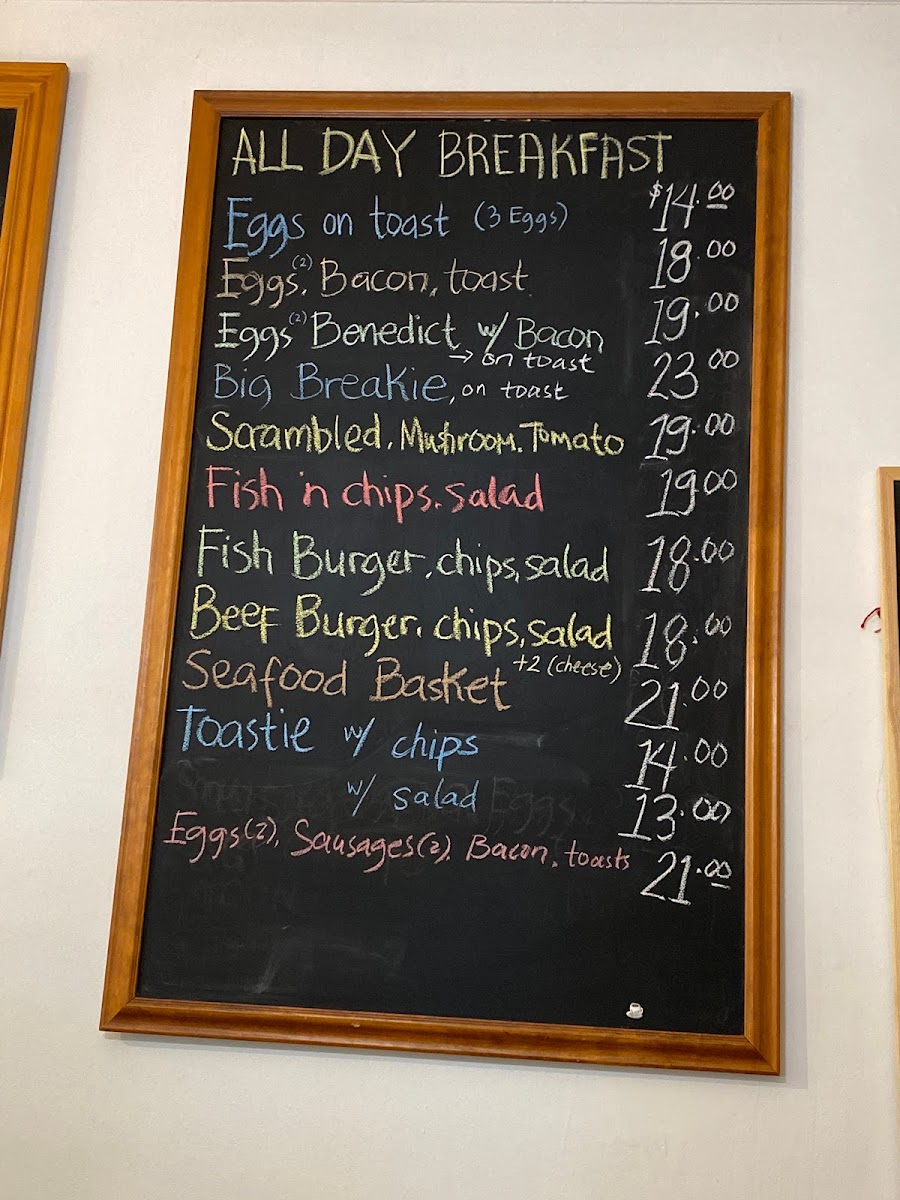 ALL DAY BREAKFAST
Eggs on toast (3 Eggs) $14.00
Eggs(2), Bacon, toast 18.00
Eggs(2) Benedict w/ Bacon 19.00
→ on toast
Big Breakie, on toast 23.00
Scrambled, Mushroom, Tomato 19.00
Fish 'n chips, salad 19.00
Fish Burger, chips, salad 18.00
Beef Burger, chips, salad 18.00
+2 (cheese)
Seafood Basket 21.00
Toastie w/ chips 14.00
w/ salad 13.00
Eggs(2), Sausages(2), Bacon, toasts 21.00